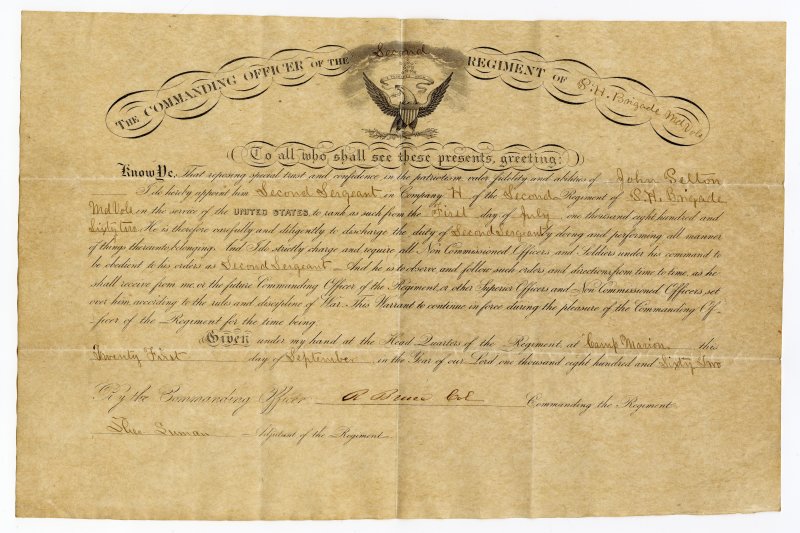 The Commanding Officer of the Second Regiment of P.H. Brigade Md Vols
To all who shall see these presents, greeting:
Know Ye, That reposing special trust and confidence in the patriotism, valor, fidelity and abilities of John
I do hereby appoint him Second Sergeant in Company H of the Second Regiment of P.H. Brigade
Md Vols in the service of the UNITED STATES, to rank as such from the First day of July, one thousand eight hundred and
Sixty two. He is therefore carefully and diligently to discharge the duty of Second Sergeant by doing and performing all manner
of things thereunto belonging. And I do strictly charge and require all Non Commissioned Officers and Soldiers under his command to
be obedient to his orders as Second Sergeant And he is to observe and follow such orders and directions from time to time, as he
shall receive from me, or the future Commanding Officer of the Regiment, or other Superior Officers and Non Commissioned Officers, set
over him, according to the rules and discipline of War. This Warrant to continue in force during the pleasure of the Commanding Of-
ficer of the Regiment for the time being.
Given under my hand at the Head Quarters of the Regiment, at Camp Marion this
Twenty First day of September, in the Year of our Lord one thousand eight hundred and Sixty Two
By the Commanding Officer R Bruce Col Commanding the Regiment.
Theo Luman Adjutant of the Regiment.